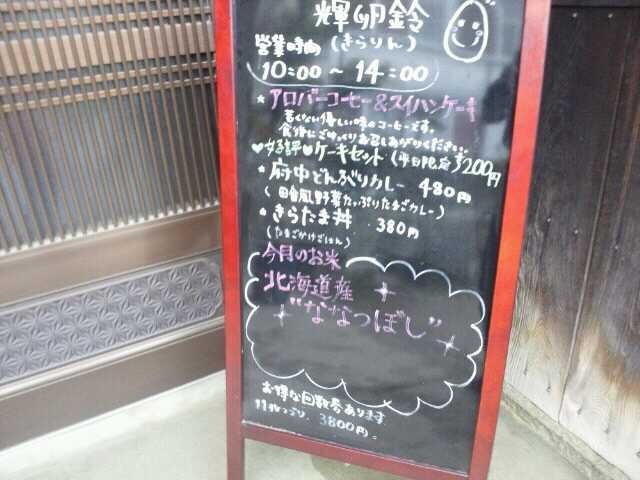 輝卵鈴
営業時間 (きらりん)
10:00 ~ 14:00
* アロパーコーヒー&スイハンケーキ
苦くない優しい味のコーヒーです。
食後にごゆっくりお召しあがりください。
♥好評♥ケーキセット (平日限定) 200円
* 府中どんぶりカレー 480円
(田舎風野菜たっぷりたまごカレー)
* きらたま丼 380円
(たまごかけごはん)
今月のお米
北海道産
"ななつぼし"
お得な回数券あります
3800円